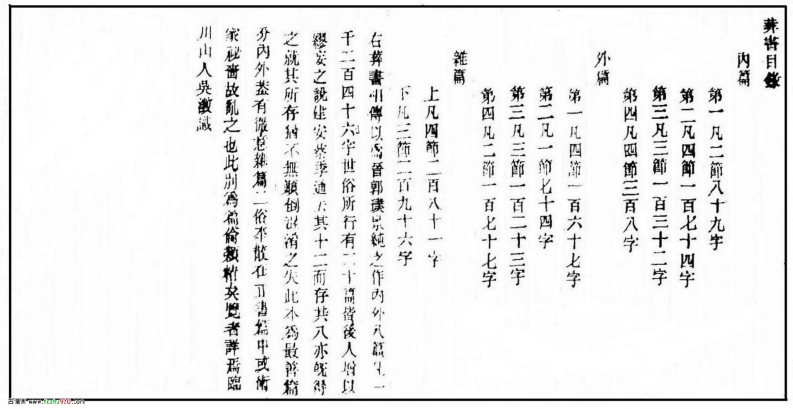 葬書目錄
內篇
第一凡二節八十九字
第二凡四節一百七十四字
第三凡三節一百三十二字
第四凡四節三百八字
外篇
第一凡四節一百六十七字
第二凡一節七十四字
第三凡三節一百二十三字
第四凡二節一百七十七字
雜篇
上凡四節二百八十一字
下凡三節二百九十六字
右葬書相傳以為晉郭璞景純之作內外八篇凡一
千二百四十六字世俗所行有二十篇皆後人增以
繆妄之說建安蔡季通去其十二而存其八亦既得
之就其所存猶不無顛倒混淆之失此本為最善篇
分內外蓋有微意雜篇二俗本散在正書篇中或術
家秘嗇故亂之也此別為篇倫類精矣覽者詳焉臨
川山人吳澂識